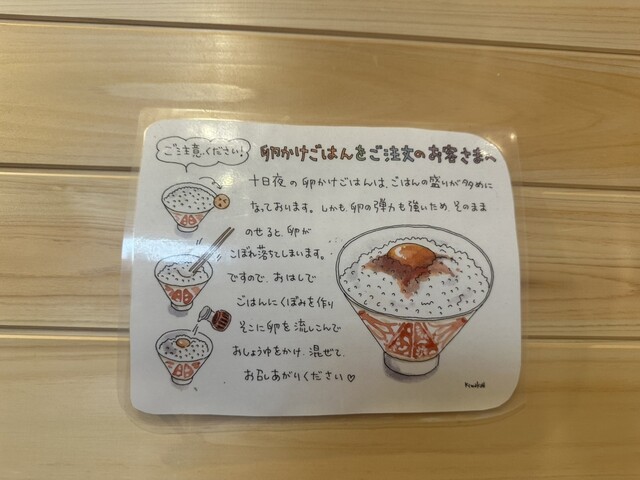 ご注意ください!
卵かけごはんをご注文のお客さまへ
十日夜の卵かけごはんは、ごはんの盛りが多めに
なっております。しかも、卵の弾力も強いため、そのまま
のせると、卵が
こぼれ落ちてしまいます。
ですので、おはしで
ごはんにくぼみを作り
そこに卵を流しこんで
おしょうゆをかけ、混ぜて、
お召しあがりください♡